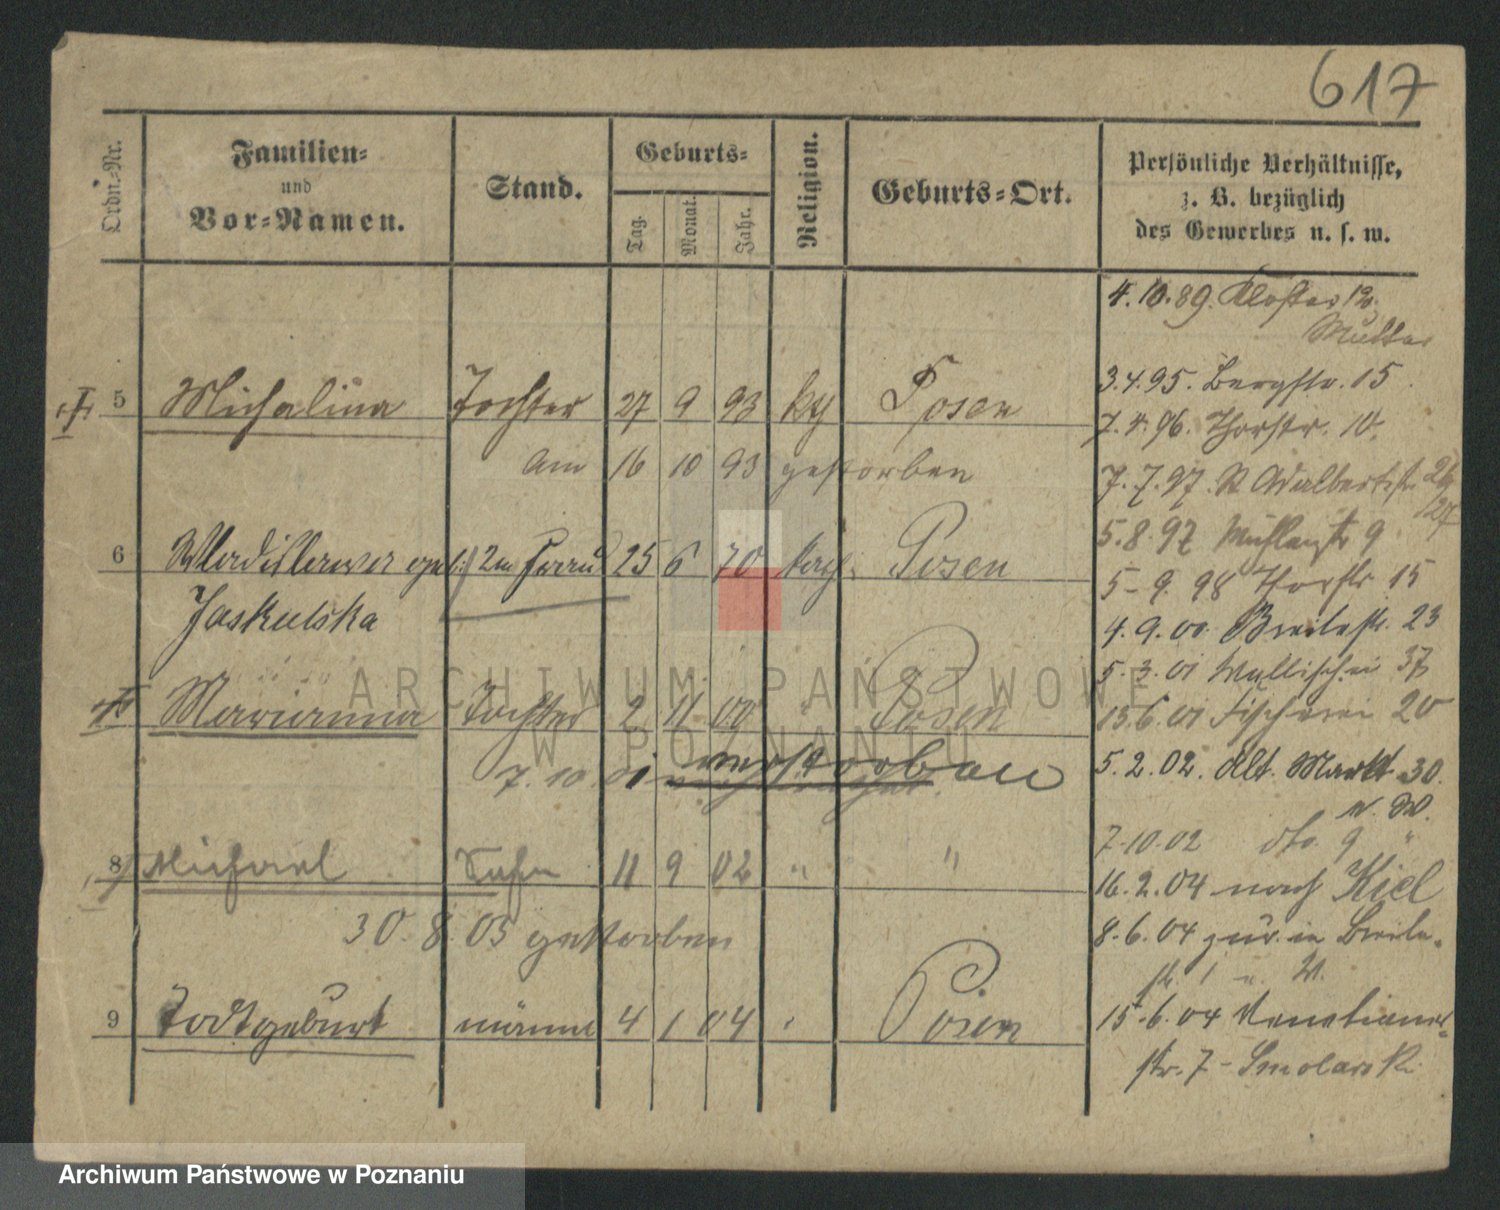 617
Ordn.-Nr.
Familien-
und
Vor-Namen.
Stand.
Geburts-
Tag.
Monat.
Jahr.
Religion.
Geburts-Ort.
Persönliche Verhältnisse,
z. B. bezüglich
des Gewerbes u. s. w.
4.10.89. Kloster
Mutter
5 Michalina Tochter 27 9 93 Posen
am 16 10 93 gestorben
6 Wladislawa 2te Frau 25 6 70 Posen
Jaskulska
Marianna Tochter 2 11 00 Posen
7.10.01 verstorben
8 Michael Sohn 11 9 02 " "
30.8.03 gestorben
9 Todtgeburt männl 4 1 04 Posen
3.4.95. Bergstr. 15
7.4.96. Thorstr. 10.
7.7.97. St Adalbertstr. 26/27
5.8.97 Mühlenstr 9
5-9.98 Thorstr 15
4.9.00. Breitestr. 23
5.3.01 Wallischei 37
13.6.01 Fischerei 20
5.2.02. Alt. Markt 30.
7.10.02 dto. 9 "
16.2.04 nach Kiel
8.6.04 zur. in Breite-
str. 1
15.6.04 Venetianer-
str. 7 -
ARCHIWUM PAŃSTWOWE
W POZNANIU
Archiwum Państwowe w Poznaniu